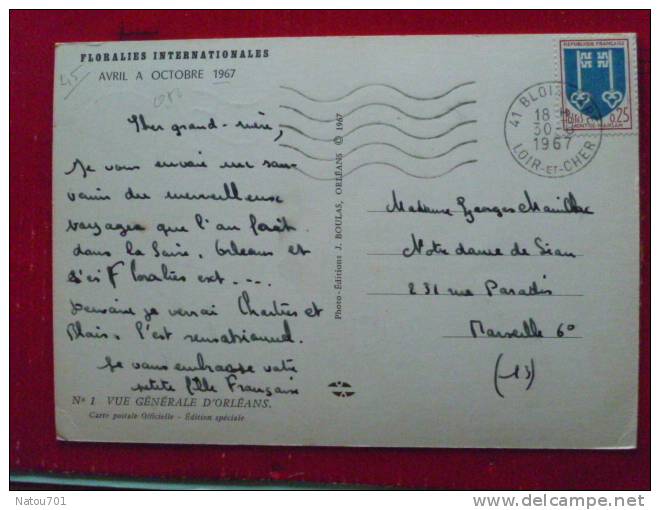 FLORALIES INTERNATIONALES
AVRIL A OCTOBRE 1967
grand-mère,
Je vous envoie un sou-
venir du merveilleux
voyage que l'on fait
dans la Loire, Orléans et
Floralies ext. ...
Demain je verrai Chartres et
Blois. C'est sensationnel.
Je vous embrasse votre
petite fille Françoise
N° 1 VUE GÉNÉRALE D'ORLÉANS.
Carte postale Officielle - Édition spéciale
Photo-Éditions J. BOULAS, ORLÉANS © 1967
REPUBLIQUE FRANÇAISE
0,25
MONT-DE-MARSAN
41 BLOIS
18 H
30
1967
LOIR-ET-CHER
Madame Georges
Notre dame de Sion
231 rue Paradis
Marseille 6°
(13)
Natou701
delcampe.net